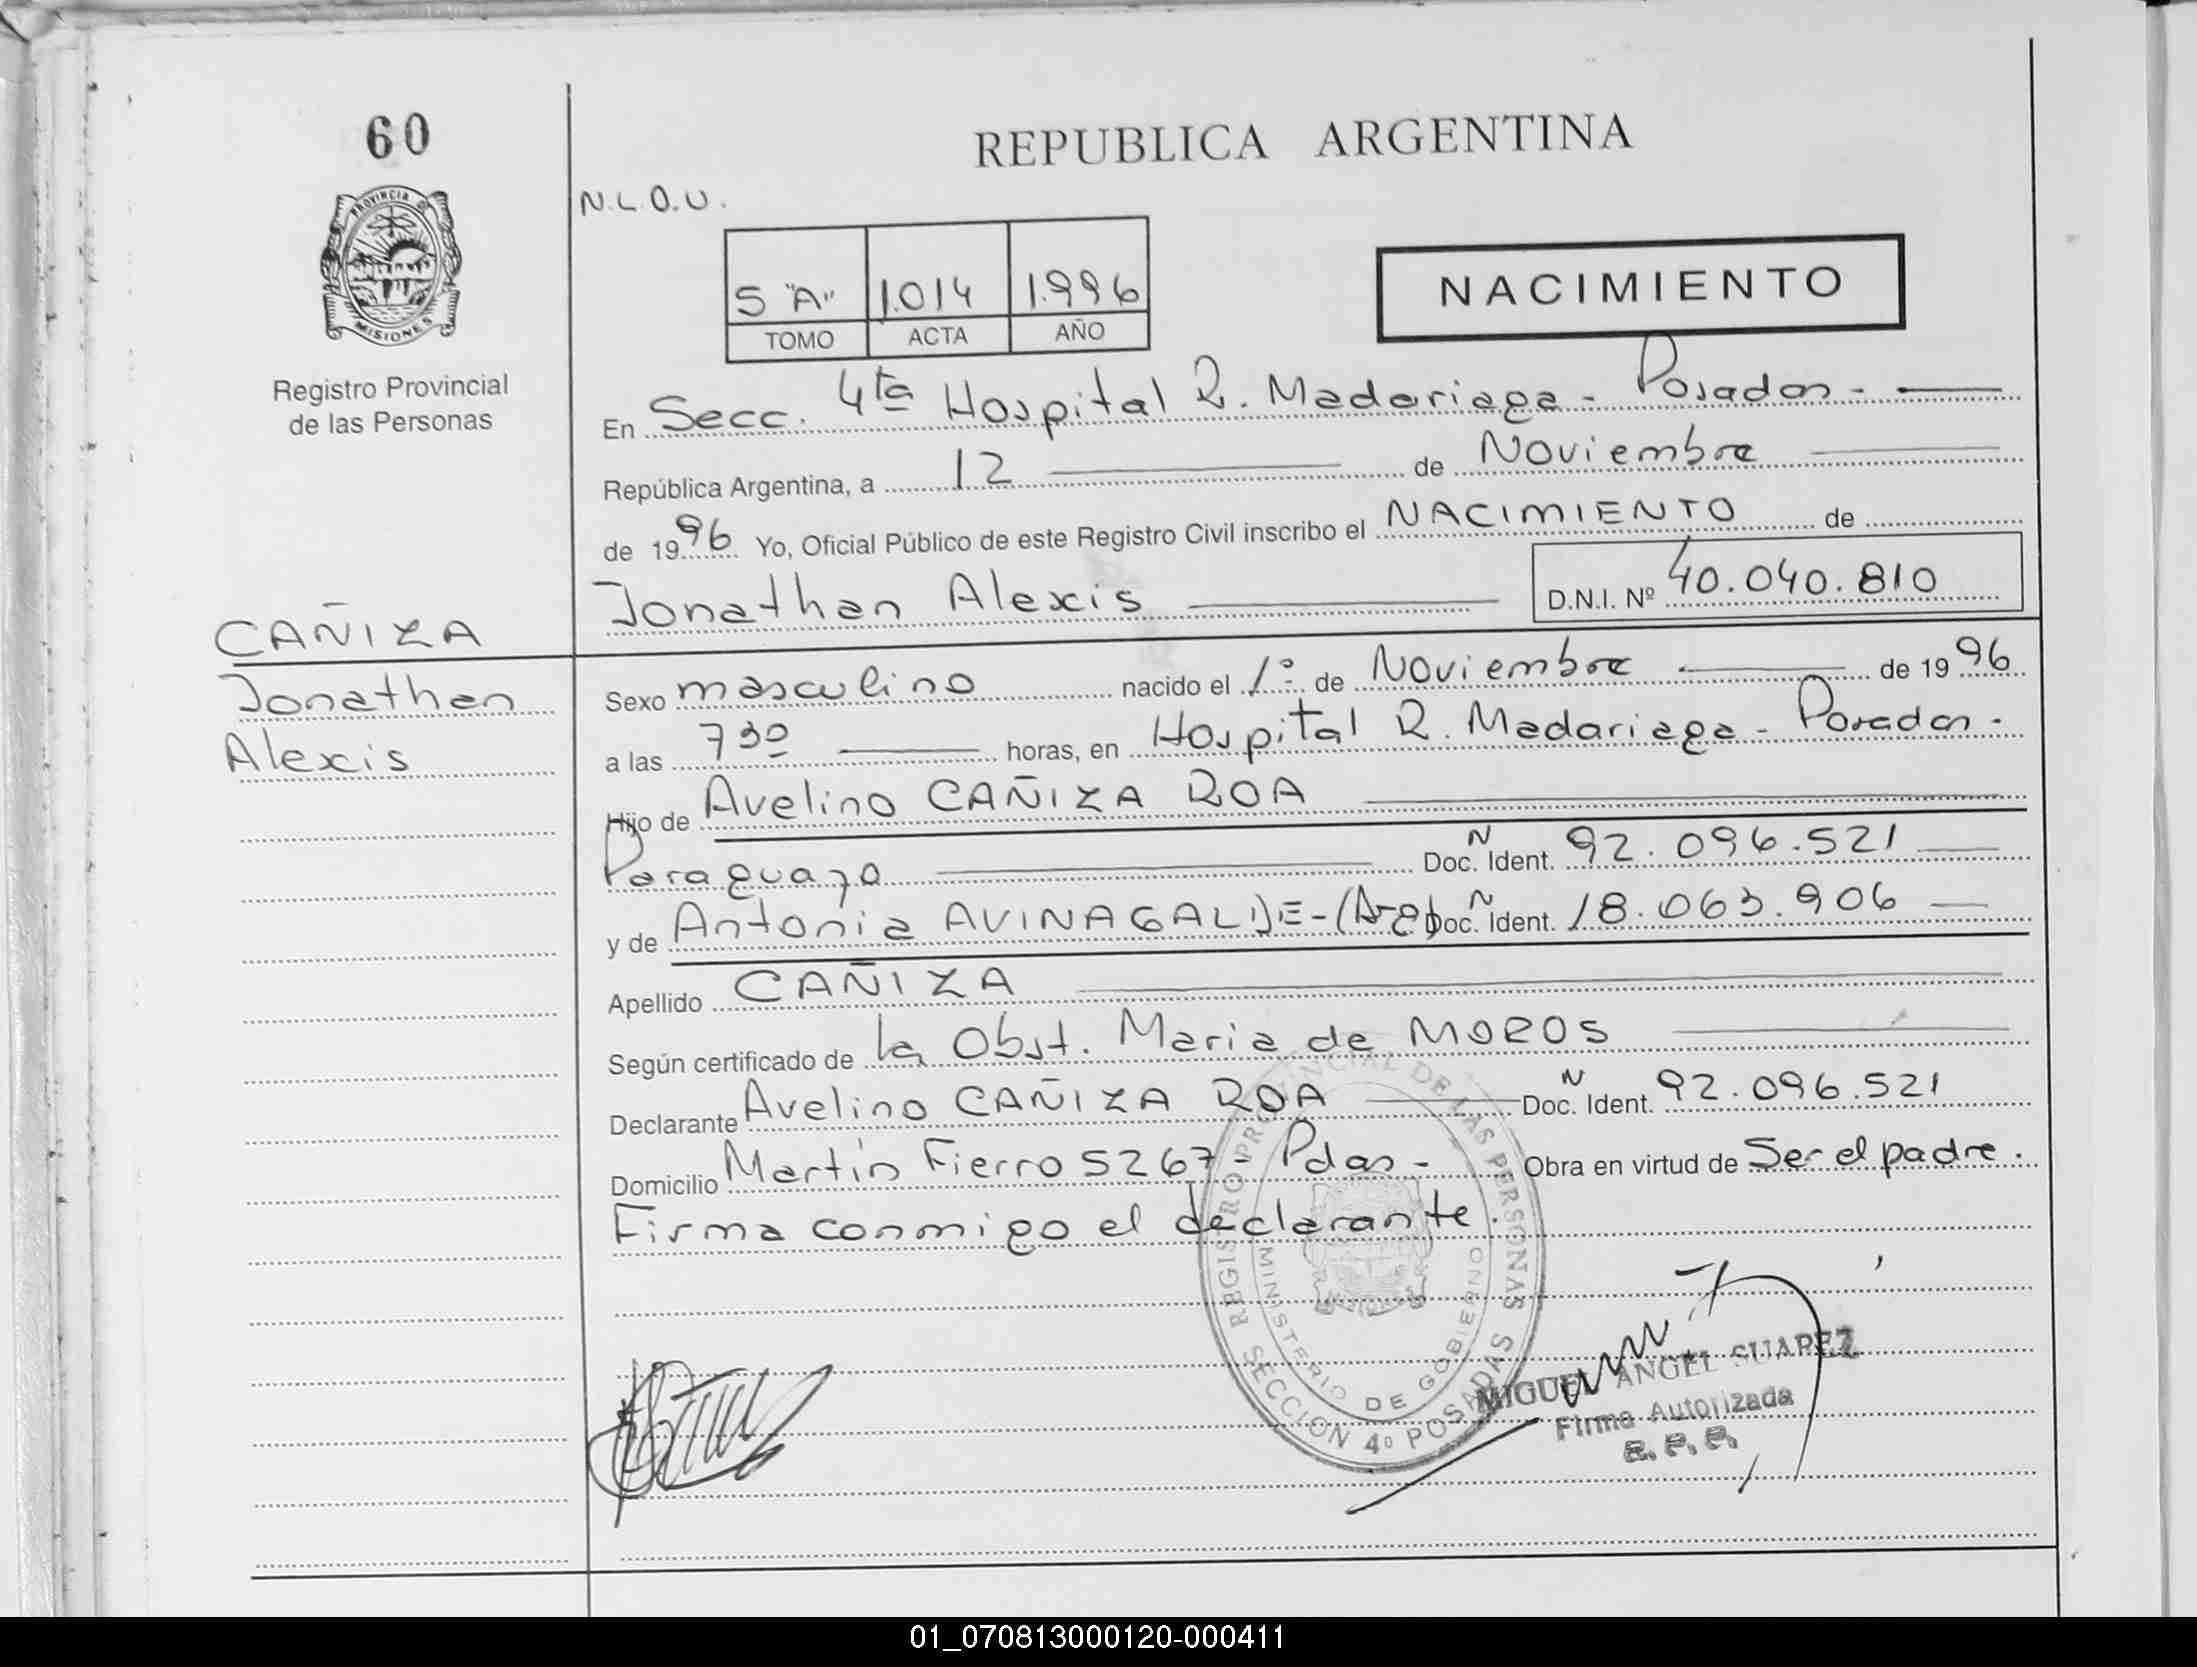 60
REPUBLICA ARGENTINA
N.L.O.U.
PROVINCIA DE
MISIONES
5 "A" 1.014 1.996
TOMO ACTA AÑO
NACIMIENTO
Registro Provincial
de las Personas
En Secc. 4ta Hospital R. Madariaga - Posadas -
República Argentina, a 12 de Noviembre
de 1996 Yo, Oficial Público de este Registro Civil inscribo el NACIMIENTO de
Jonathan Alexis D.N.I. Nº 40.040.810
CAÑIZA
Jonathan
Alexis
Sexo masculino nacido el 1º de Noviembre de 1996
a las 730 horas, en Hospital R. Madariaga - Posadas.
Hijo de Avelino CAÑIZA ROA
Paraguayo Doc. Ident. N 92.096.521
y de Antonia AVINAGALDE - (Arg) Doc. Ident. N 18.063.906
Apellido CAÑIZA
Según certificado de la Obst. Maria de MOROS
Declarante Avelino CAÑIZA ROA Doc. Ident. N 92.096.521
Domicilio Martín Fierro 5267 - Pdas - Obra en virtud de Ser el padre.
Firma conmigo el declarante.
REGISTRO PROVINCIAL DE LAS PERSONAS
MINISTERIO DE GOBIERNO
SECCION 4º POSADAS
MIGUEL ANGEL SUAREZ
Firma Autorizada
R. P. P.
01_070813000120-000411